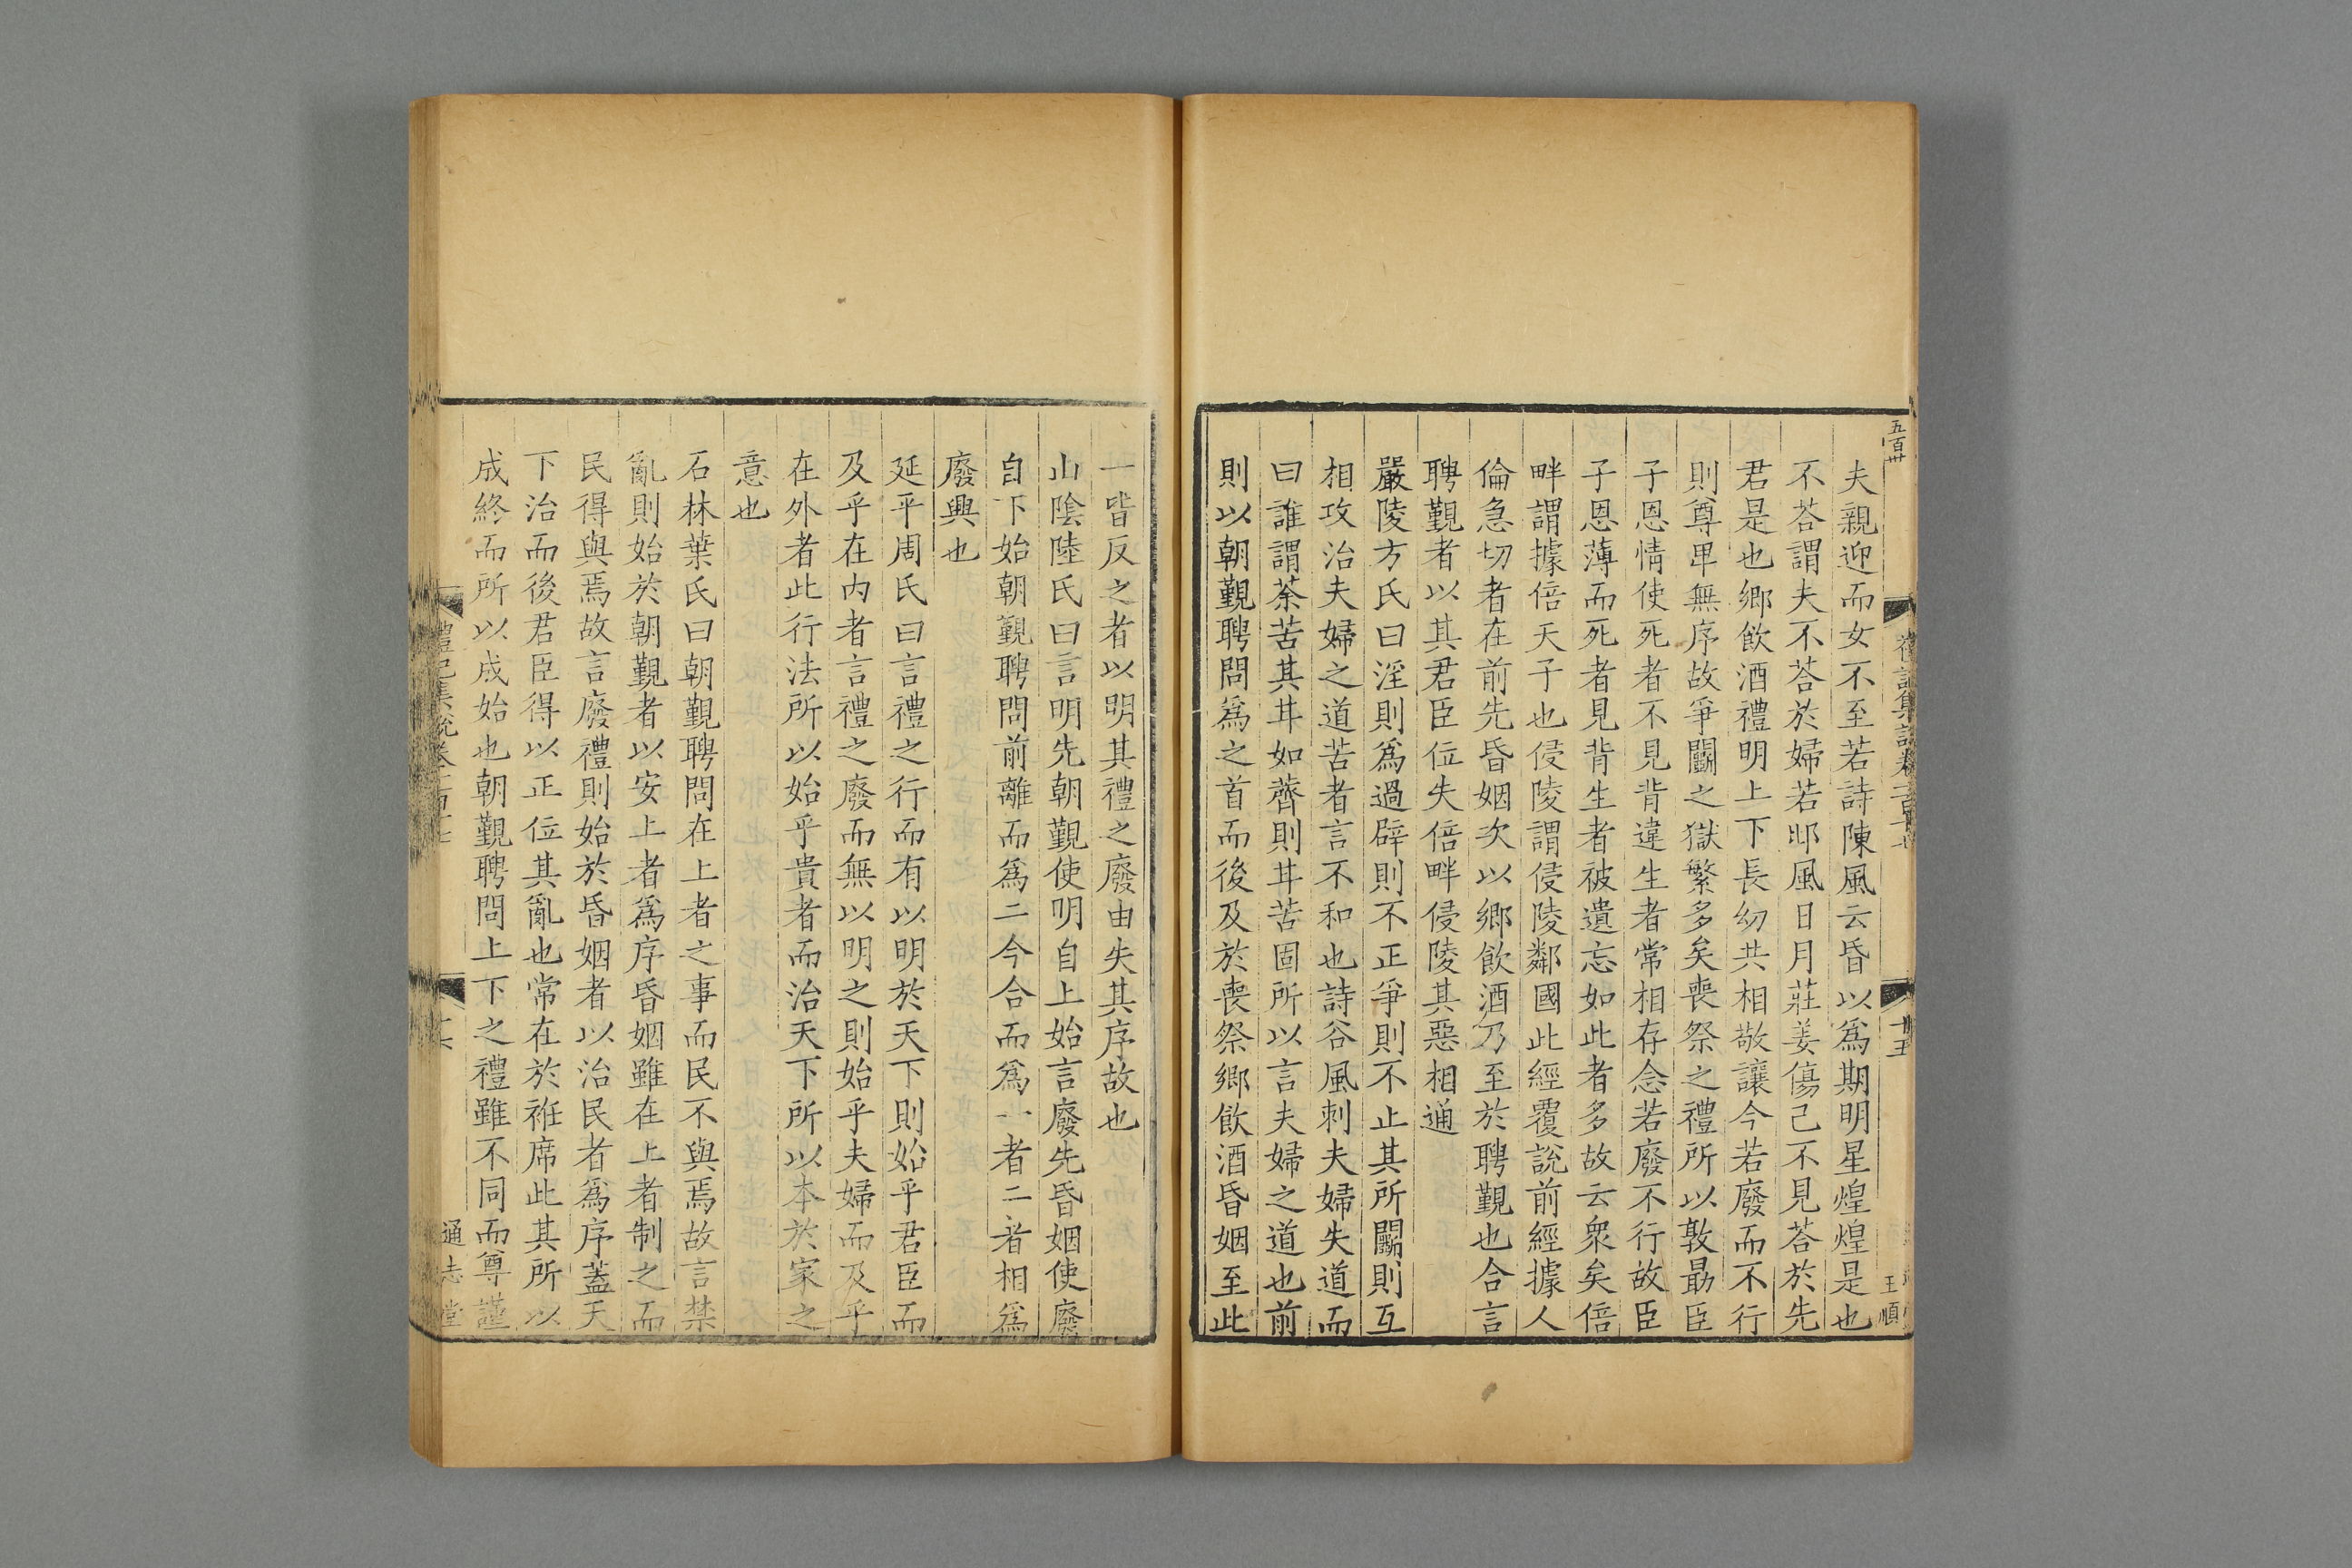 五百卅
夫親迎而女不至若詩陳風云昏以爲期明星煌煌是也
不荅謂夫不荅於婦若邶風日月莊姜傷己不見荅於先
君是也鄉飲酒禮明上下長幼共相敬讓今若廢而不行
則尊卑無序故爭鬭之獄繁多矣喪祭之禮所以敦勗臣
子恩情使死者不見背違生者常相存念若廢不行故臣
子恩薄而死者見背生者被遺忘如此者多故云衆矣倍
畔謂據倍天子也侵陵謂侵陵鄰國此經覆說前經據人
倫急切者在前先昏姻次以鄉飲酒乃至於聘覲也合言
聘覲者以其君臣位失倍畔侵陵其惡相通
嚴陵方氏曰淫則爲過辟則不正爭則不止其所鬭則互
相攻治夫婦之道苦者言不和也詩谷風刺夫婦失道而
曰誰謂荼苦其甘如薺則甘苦固所以言夫婦之道也前
則以朝覲聘問爲之首而後及於喪祭鄉飲酒昏姻至此
王順
一皆反之者以明其禮之廢由失其序故也
山陰陸氏曰言明先朝覲使明自上始言廢先昏姻使廢
自下始朝覲聘問前離而爲二今合而爲一者二者相爲
廢興也
延平周氏曰言禮之行而有以明於天下則始乎君臣而
及乎在内者言禮之廢而無以明之則始乎夫婦而及乎
在外者此行法所以始乎貴者而治天下所以本於家之
意也
石林葉氏曰朝覲聘問在上者之事而民不與焉故言禁
亂則始於朝覲者以安上者爲序昏姻雖在上者制之而
民得與焉故言廢禮則始於昏姻者以治民者爲序蓋天
下治而後君臣得以正位其亂也常在於袵席此其所以
成終而所以成始也朝覲聘問上下之禮雖不同而尊謹
通志堂